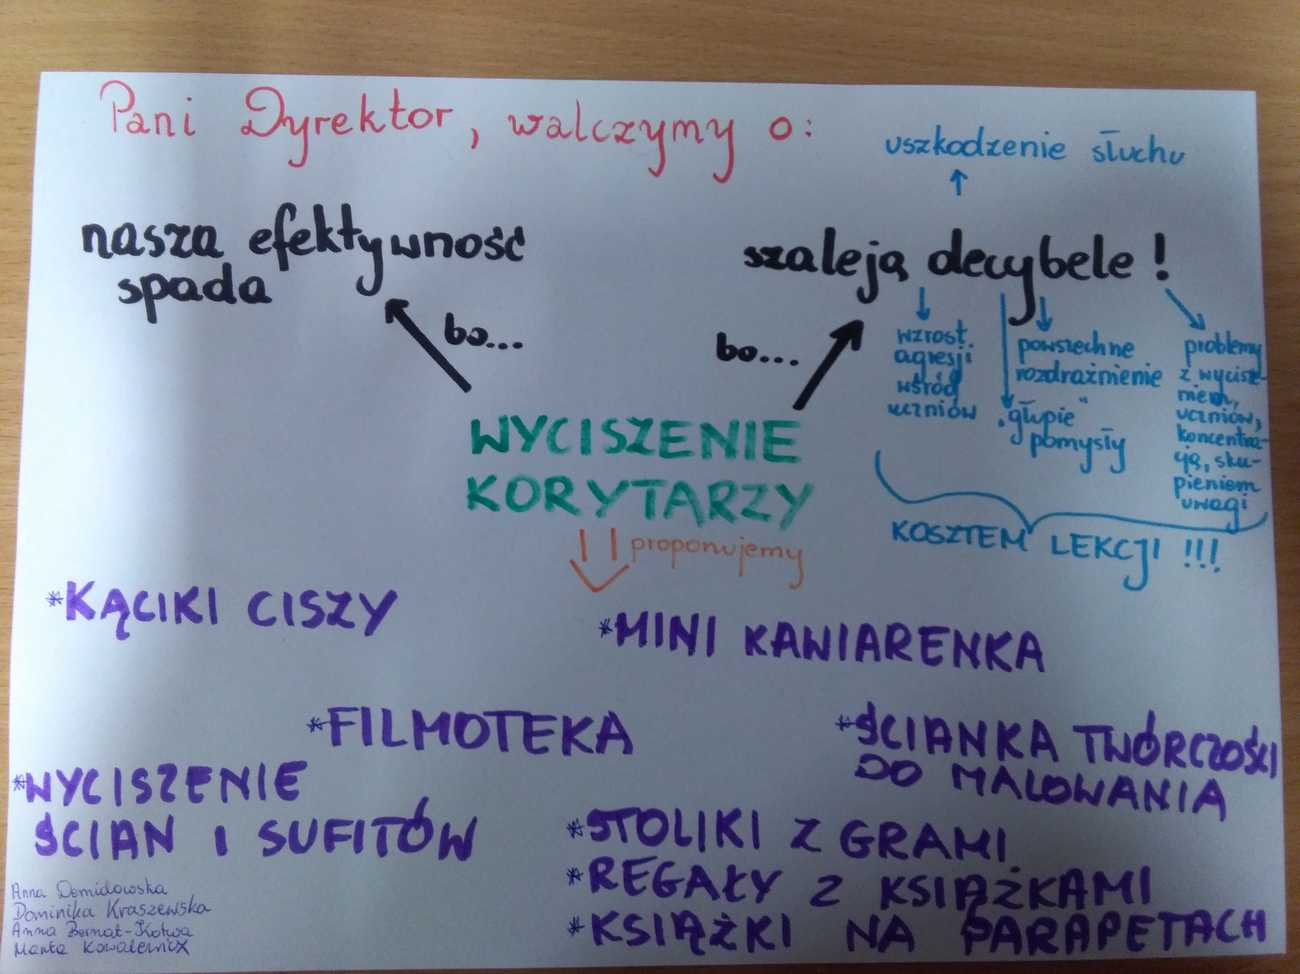 Pani Dyrektor, walczymy o:
uszkodzenie słuchu
nasza efektywność
spada
szaleją decybele!
bo...
bo...
wzrost
agresji
wśród
uczniów
„głupie"
pomysły
powszechne
rozdrażnienie
problemy
z wycisze-
niem,
uczniów,
koncentra-
cją, sku-
pieniem
uwagi
KOSZTEM LEKCJI !!!
WYCISZENIE
KORYTARZY
proponujemy
*KĄCIKI CISZY
*MINI KAWIARENKA
*FILMOTEKA
*ŚCIANKA TWÓRCZOŚCI
DO MALOWANIA
*WYCISZENIE
ŚCIAN I SUFITÓW
*STOLIKI Z GRAMI
*REGAŁY Z KSIĄŻKAMI
*KSIĄŻKI NA PARAPETACH
Anna Demidowska
Dominika Kraszewska
Anna Bernat-Kotwa
Marta Kowalewicz